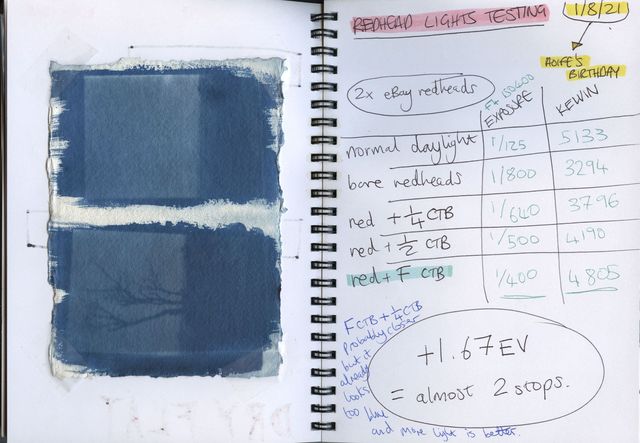 REDHEAD LIGHTS TESTING
1/8/21
AOIFE'S
BIRTHDAY
2x eBay redheads
F4 ISO400
EXPOSURE
KELVIN
normal daylight 1/125 5133
bare redheads 1/800 3294
red + 1/4 CTB 1/640 3796
red + 1/2 CTB 1/500 4190
red + F CTB 1/400 4805
F CTB + 1/4 CTB
probably closer
but it
already
looks
too blue
and more light is better.
+1.67 EV
= almost 2 stops.